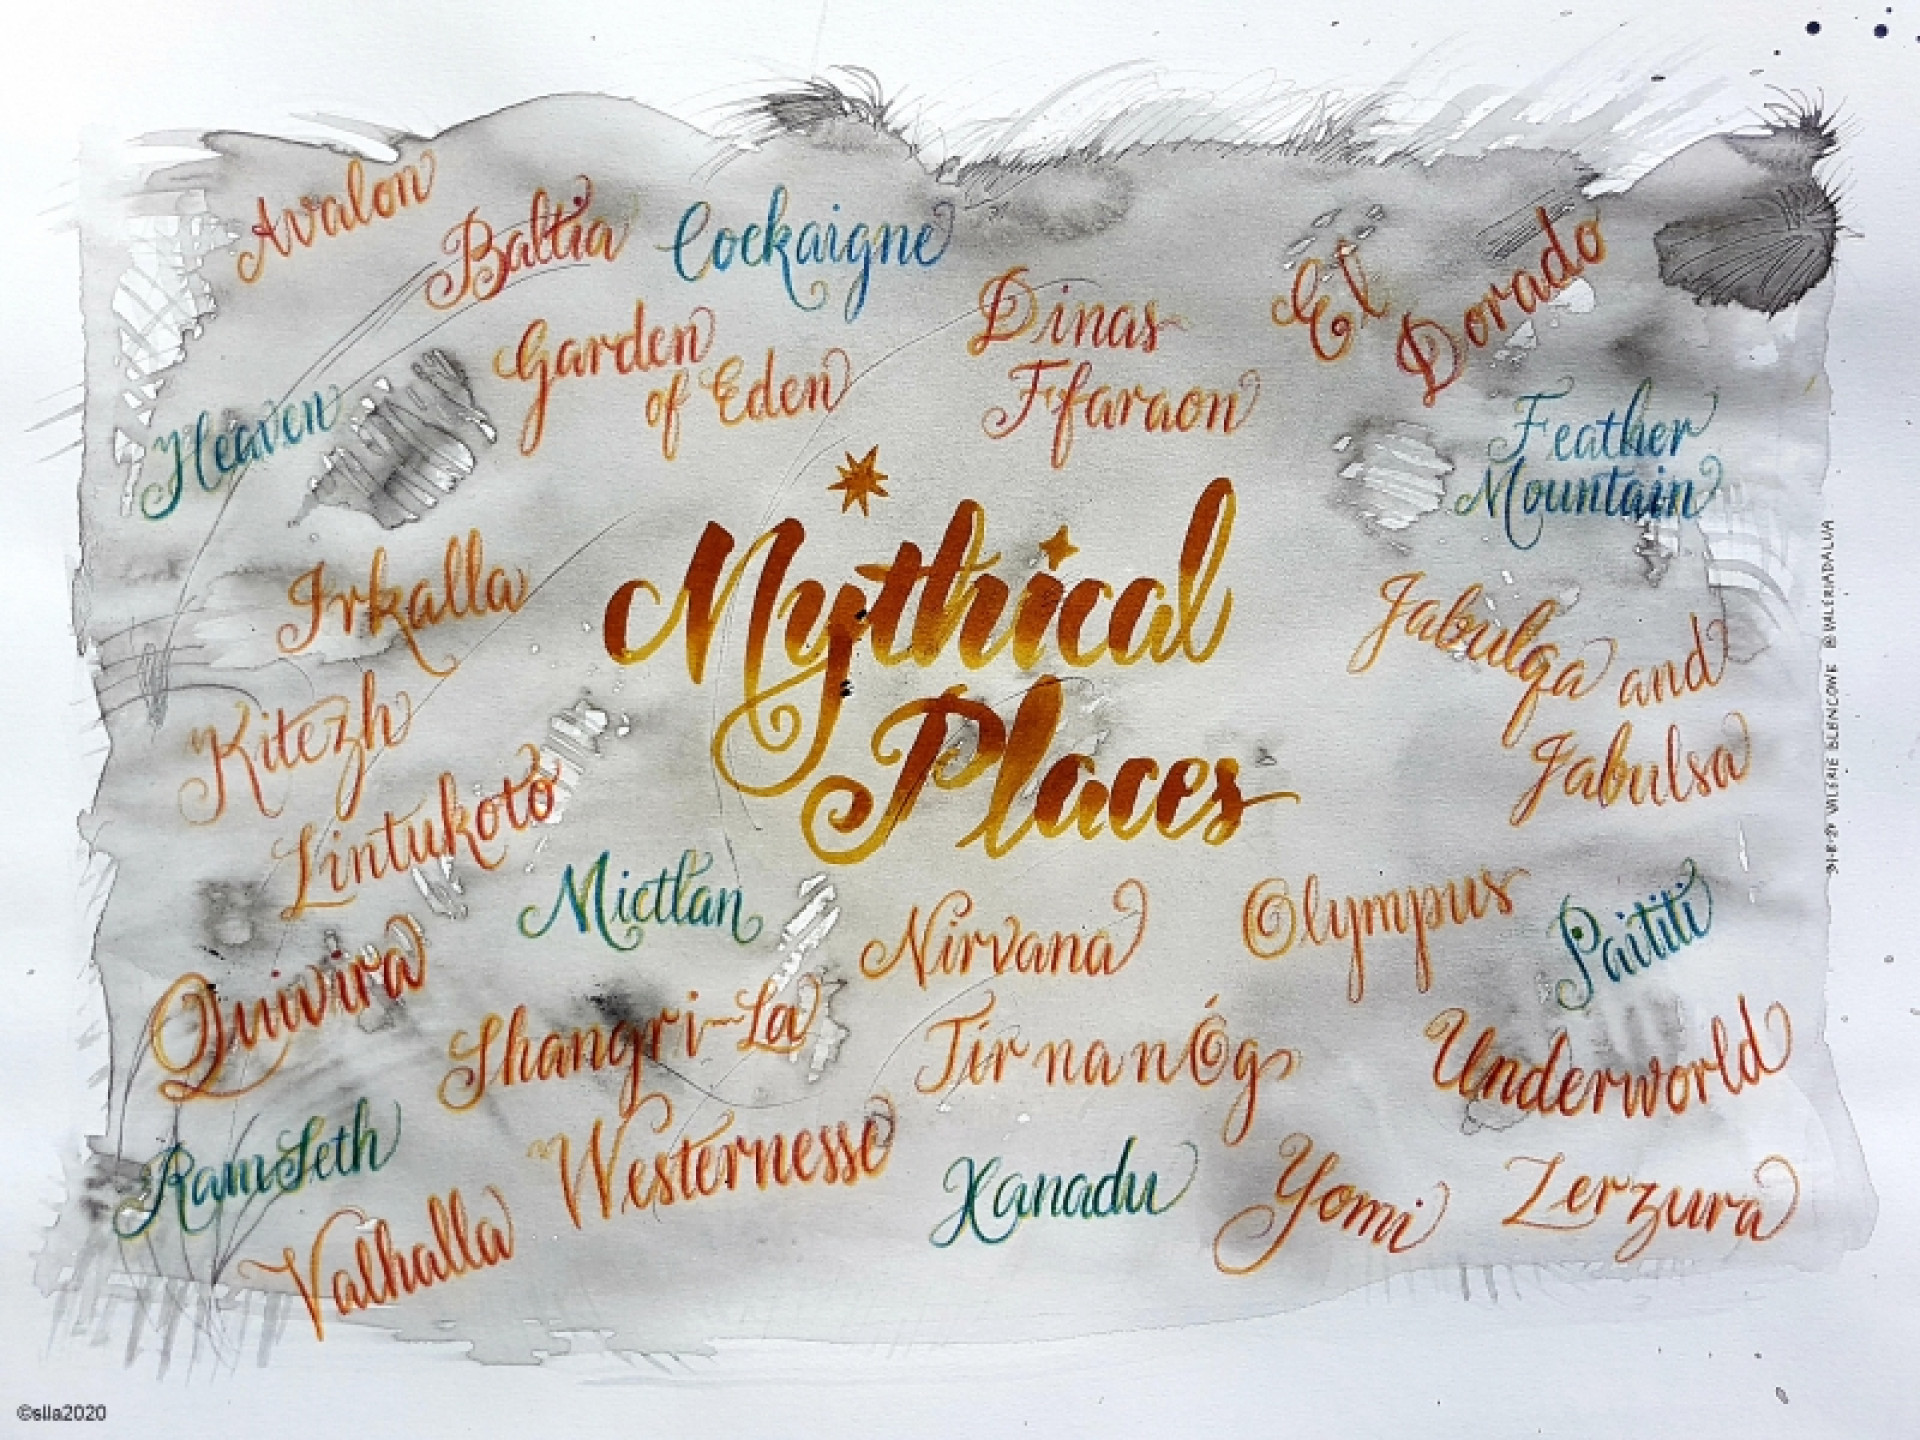 Avalon
Baltia
Cockaigne
Dinas
Ffaraon
El
Dorado
Garden
of Eden
Heaven
Feather
Mountain
Mythical
Places
Irkalla
Jabulqa and
Jabulsa
Kitezh
Lintukoto
Mictlan
Nirvana
Olympus
Paititi
Quivira
Shangri-La
Tír na nÓg
Underworld
Ram Seth
Westernesse
Valhalla
Xanadu
Yomi
Zerzura
VALERIE BLENCOWE @VALERIADALUA
©slla2020